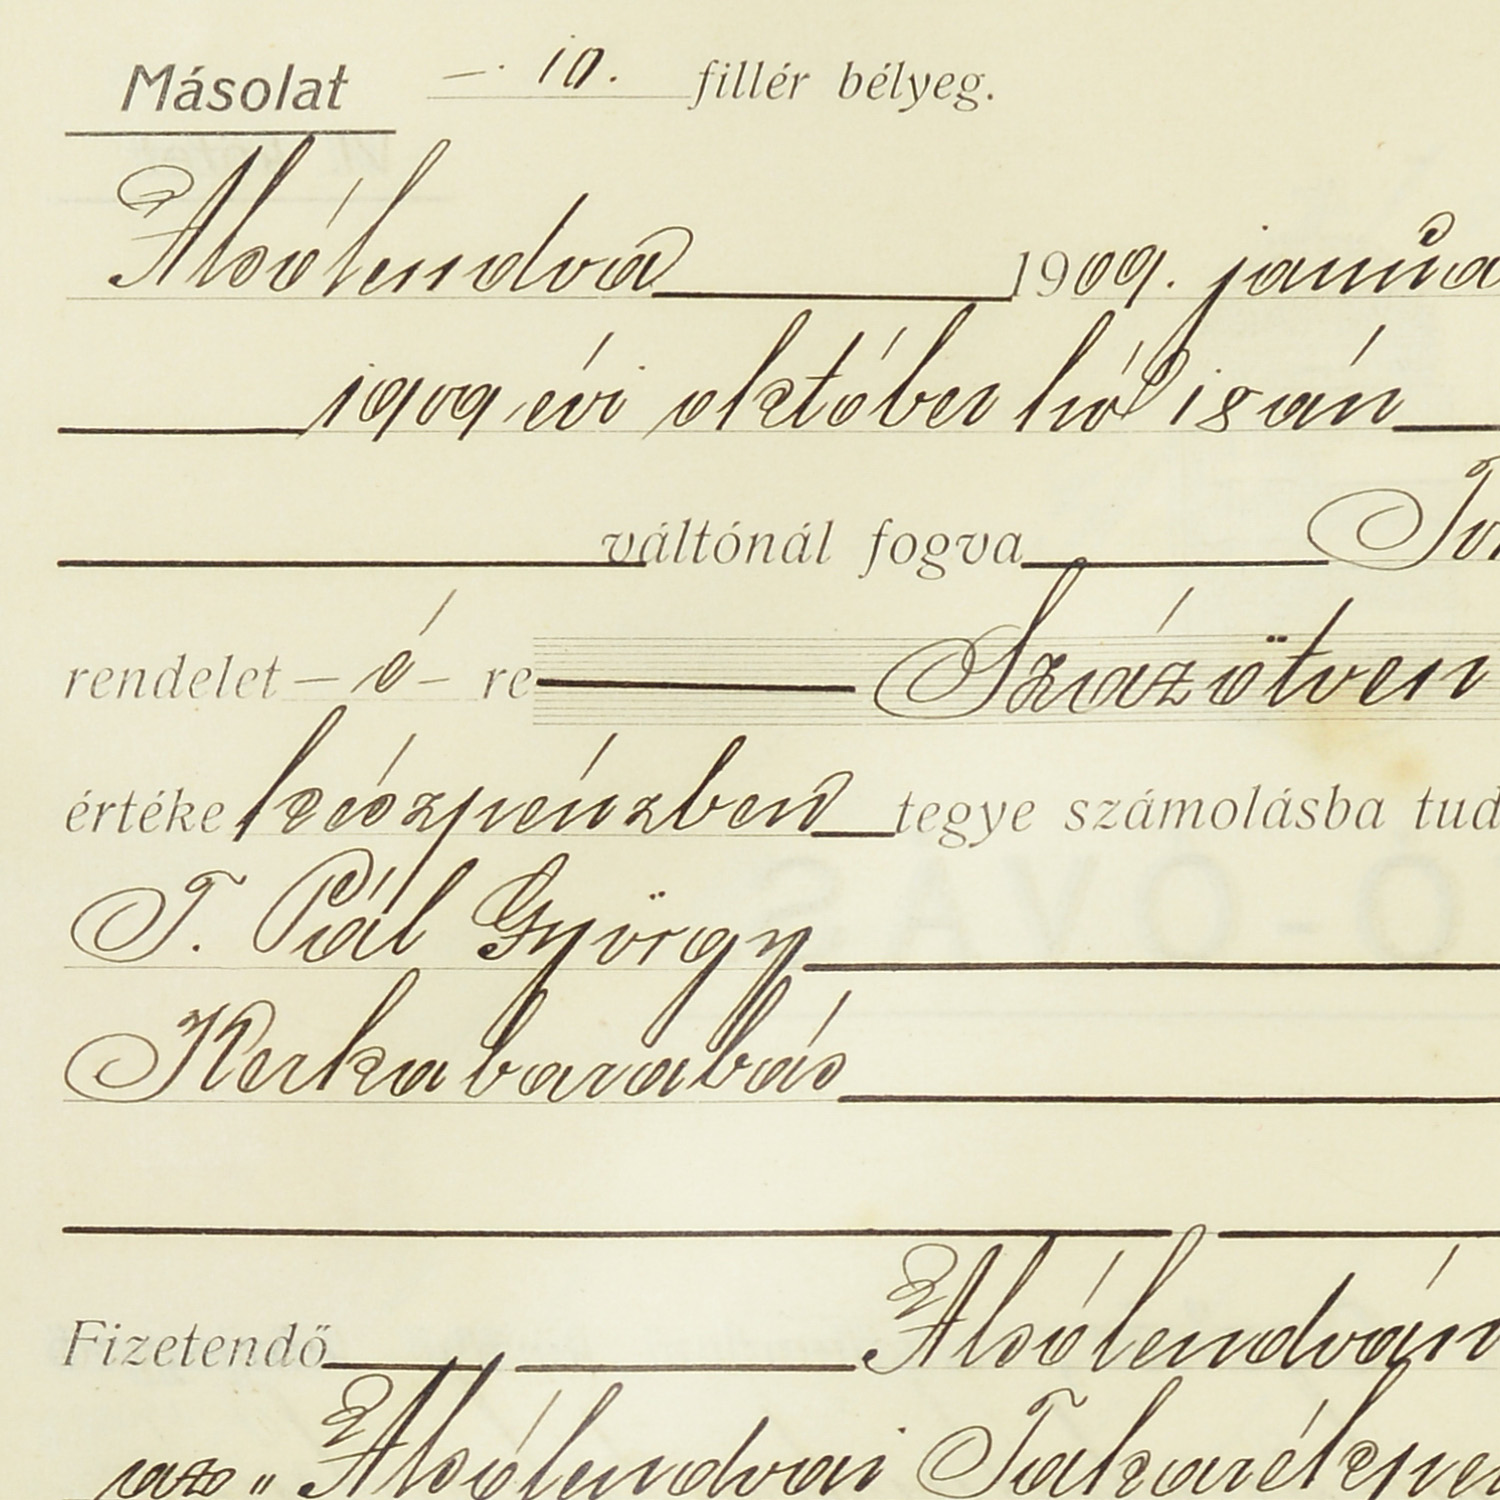 Másolat —· 10. fillér bélyeg.
Alsólendva 1909. január
1909 évi október hó 18 án
váltónál fogva
rendelet – ő – re Százötven
értéke készpénzben tegye számolásba tud
T. Pál György
Kerkabarabás
Fizetendő Alsólendván
az „Alsólendvai Takarékpén